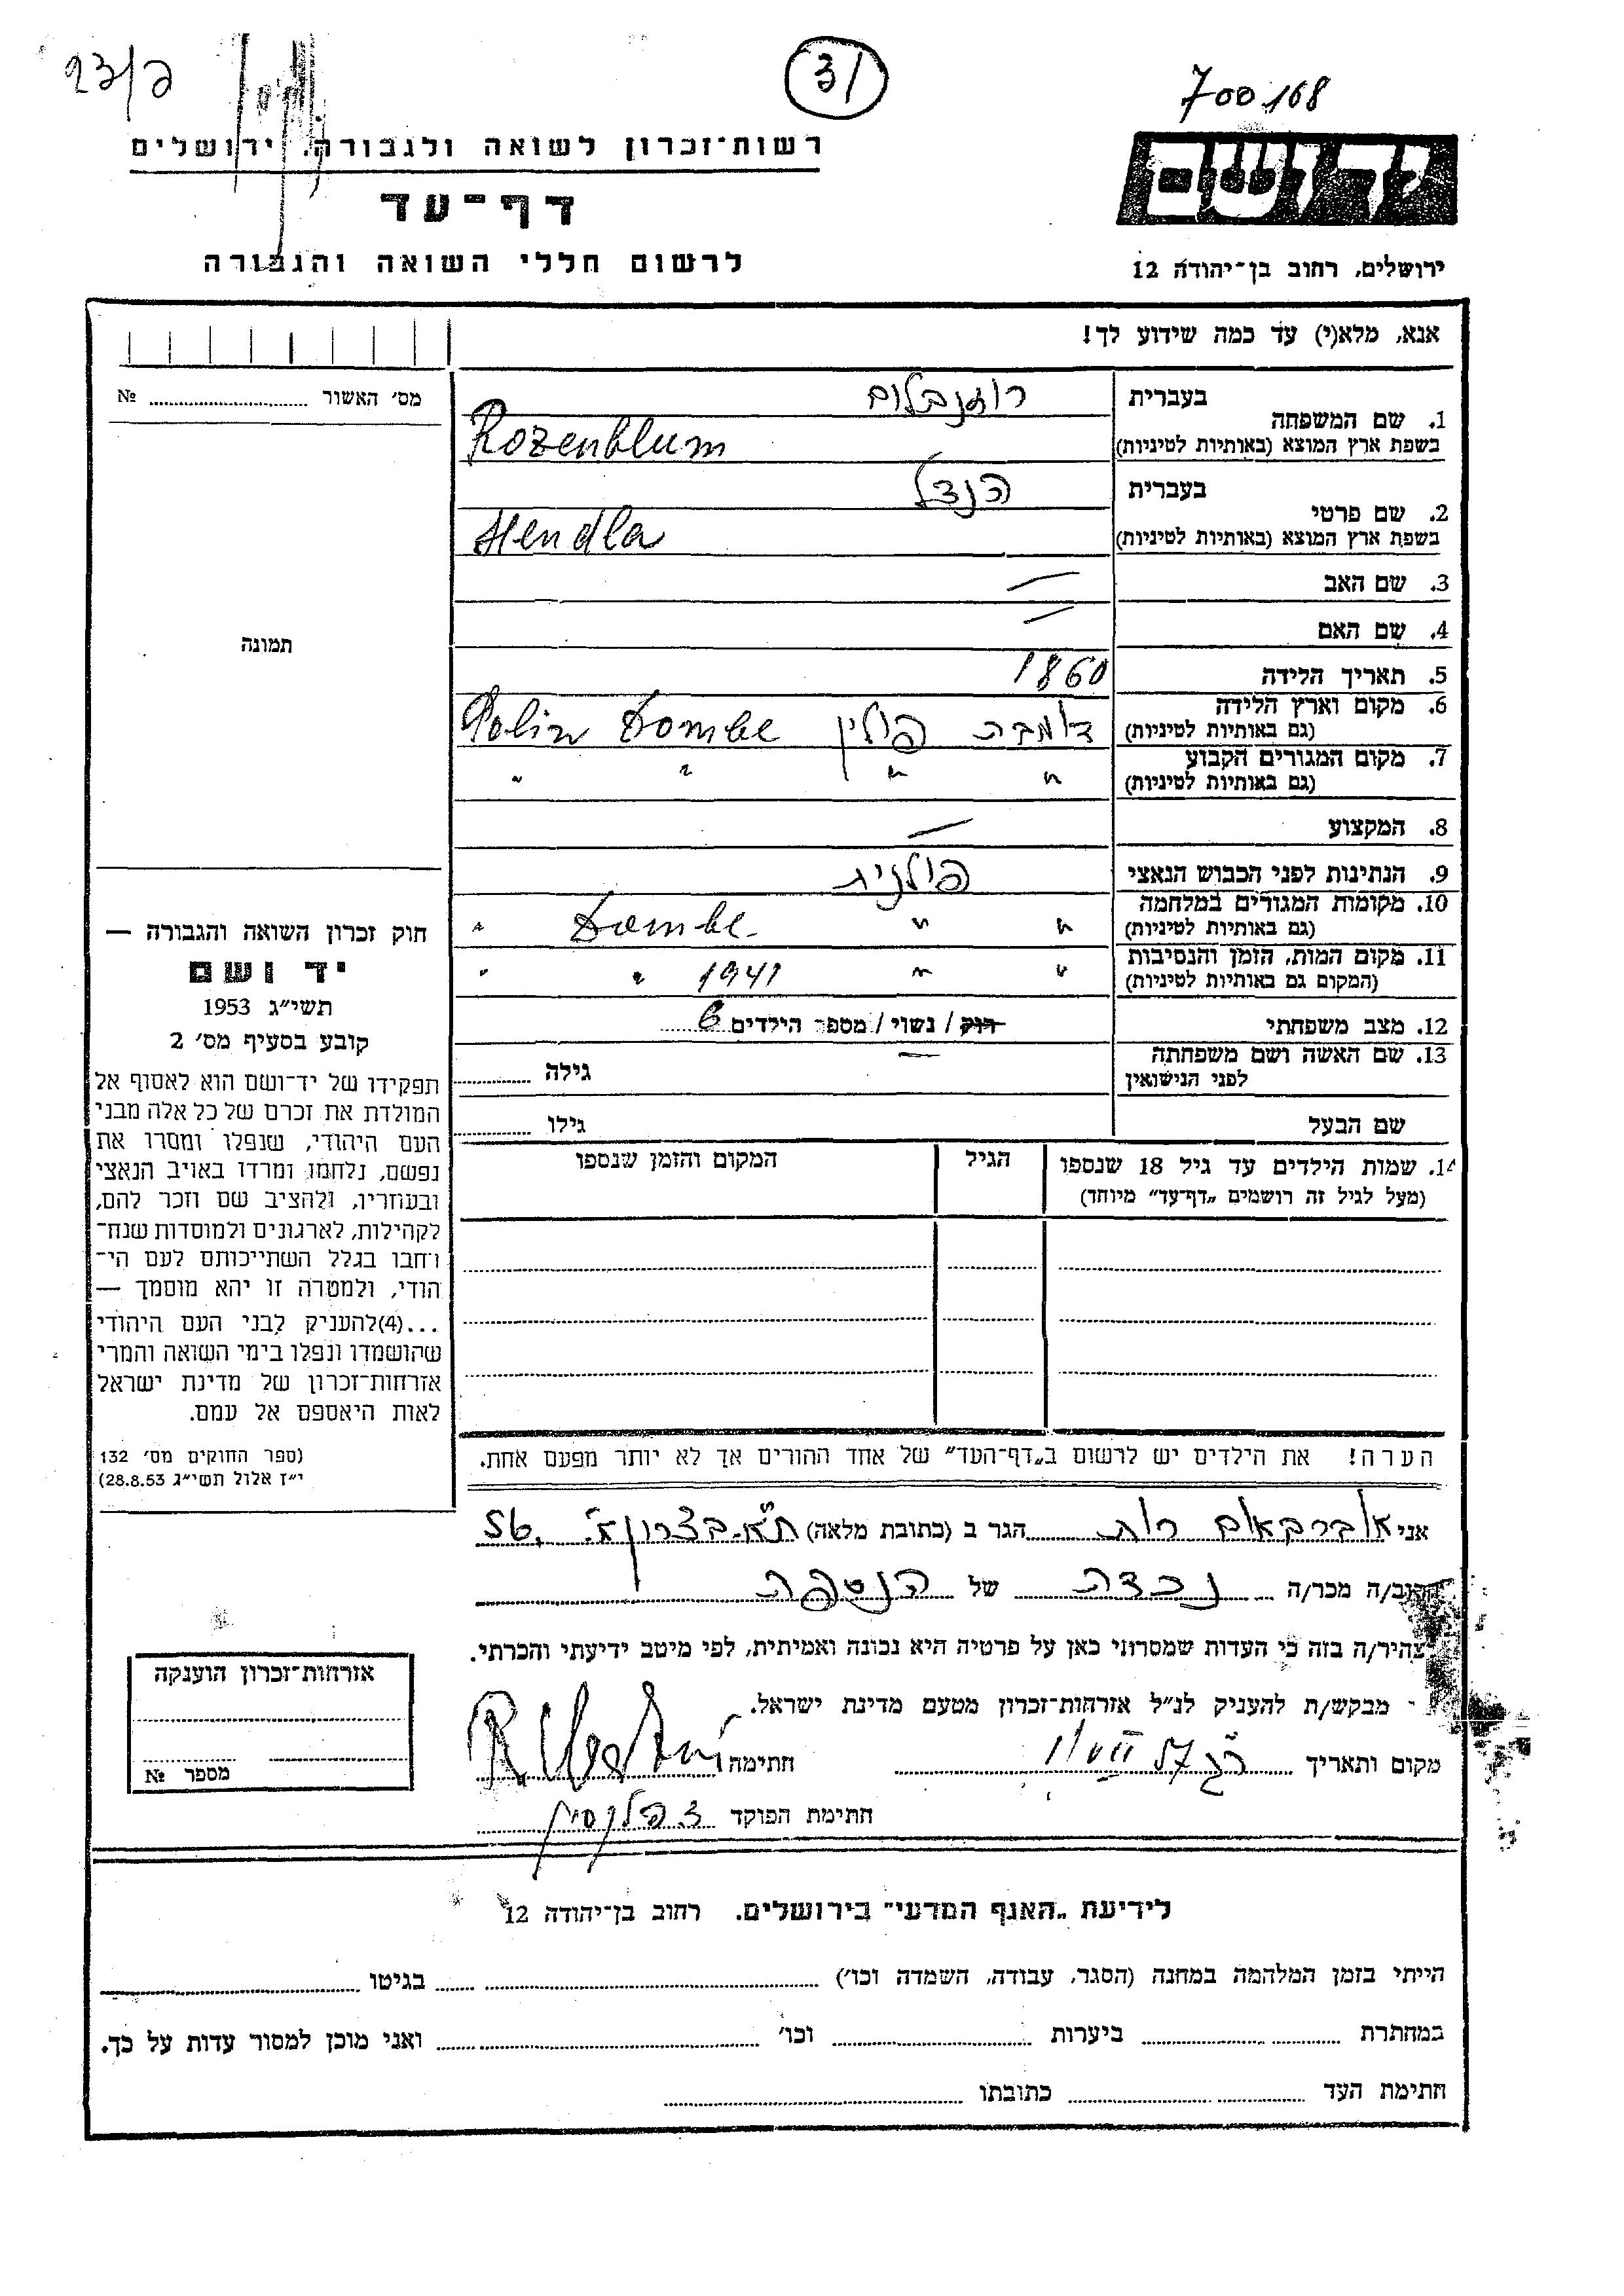 23/ק
31
700168
רשות־זכרון לשואה ולגבורה, ירושלים
דף־עד
לרשום חללי השואה והגבורה
יד ושם
ירושלים, רחוב בן־יהודה 12
אנא, מלא(י) עד כמה שידוע לך!
מס׳ האשור № 
תמונה
חוק זכרון השואה והגבורה —
יד ושם
תשי״ג 1953
קובע בסעיף מס׳ 2
תפקידו של יד־ושם הוא לאסוף אל
המולדת את זכרם של כל אלה מבני
העם היהודי, שנפלו ומסרו את
נפשם, נלחמו ומרדו באויב הנאצי
ובעוזריו, ולהציב שם וזכר להם,
לקהילות, לארגונים ולמוסדות שנח־
רבו בגלל השתייכותם לעם הי־
הודי, ולמטרה זו יהא מוסמך —
...(4)להעניק לבני העם היהודי
שהושמדו ונפלו בימי השואה והמרי
אזרחות־זכרון של מדינת ישראל
לאות היאספם אל עמם.
(ספר החוקים מס׳ 132
י״ז אלול תשי״ג 28.8.53)
בעברית רוזנבלום
1. שם המשפחה
בשפת ארץ המוצא (באותיות לטיניות) Rozenblum
בעברית הנדל
2. שם פרטי
בשפת ארץ המוצא (באותיות לטיניות) Hendla
3. שם האב —
4. שם האם —
5. תאריך הלידה 1860
6. מקום וארץ הלידה
(גם באותיות לטיניות) דומבה פולין Dombe Polin
7. מקום המגורים הקבוע
(גם באותיות לטיניות) " " " "
8. המקצוע —
9. הנתינות לפני הכבוש הנאצי פולנית
10. מקומות המגורים במלחמה
(גם באותיות לטיניות) " " Dombe "
11. מקום המות, הזמן והנסיבות
(המקום גם באותיות לטיניות) " " 1941 " "
12. מצב משפחתי רוק / נשוי / מספר הילדים 6
13. שם האשה ושם משפחתה — גילה
לפני הנישואין
שם הבעל גילו
14. שמות הילדים עד גיל 18 שנספו הגיל המקום והזמן שנספו
(מעל לגיל זה רושמים „דף־עד״ מיוחד)
הערה! את הילדים יש לרשום ב„דף־העד״ של אחד ההורים אך לא יותר מפעם אחת.
אני אוברבאום רות הגר ב (כתובת מלאה) ת״א 56
קרוב/ה מכר/ה נכדה של הנספה
מצהיר/ה בזה כי העדות שמסרתי כאן על פרטיה היא נכונה ואמיתית, לפי מיטב ידיעתי והכרתי.
מבקש/ת להעניק לנ״ל אזרחות־זכרון מטעם מדינת ישראל.
מקום ותאריך חתימה
חתימת הפוקד
אזרחות־זכרון הוענקה
מספר №
לידיעת „האגף המדעי״ בירושלים. רחוב בן־יהודה 12
הייתי בזמן המלחמה במחנה (הסגר, עבודה, השמדה וכו׳) בגיטו
במחתרת ביערות וכו׳ ואני מוכן למסור עדות על כך.
חתימת העד כתובתו